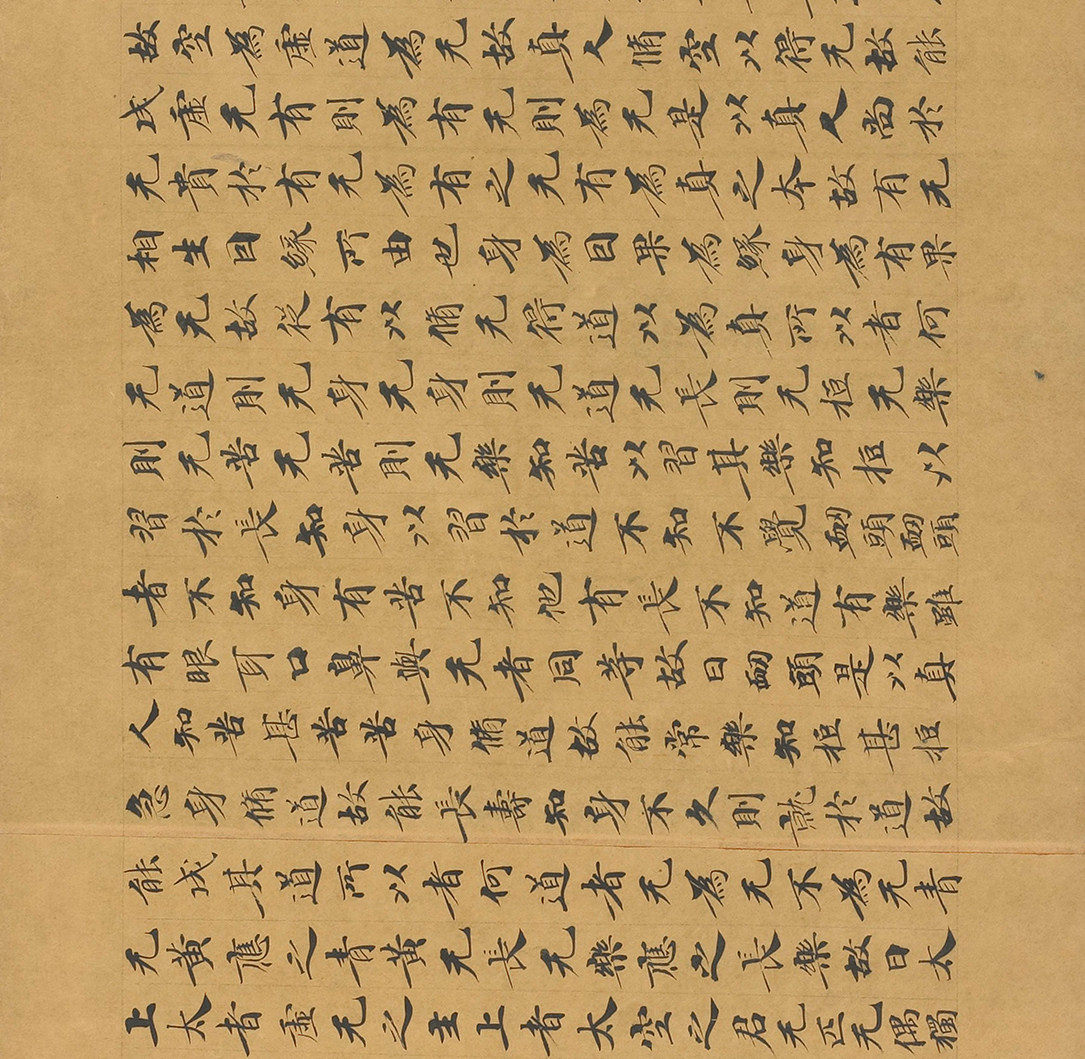 故空為虛道為无故真人脩空以得无故能
成虛无有則為有无則為无是以真人尚於
无貴於有无為有之无有為真之本故有无
相生因緣所由也身為因果為緣身為有果
為无故從有以脩无得道以為真所以者何
无道則无身无身則无道无長則无短无樂
則无苦无苦則无樂知苦以習其樂知短以
習於長知身以習於道不知不覺衂頭衂頭
者不知身有苦不知他有長不知道有樂雖
有眼耳口鼻與无者同等故曰衂頭是以真
人知苦甚苦苦身脩道故能常樂知短甚短
急身脩道故能長壽知身不久則就於道故
能成其道所以者何道者无為无不為无青
无黃應之青黃无長无樂應之長樂故曰太
上太者虛无之主上者太空之君无匹无偶獨